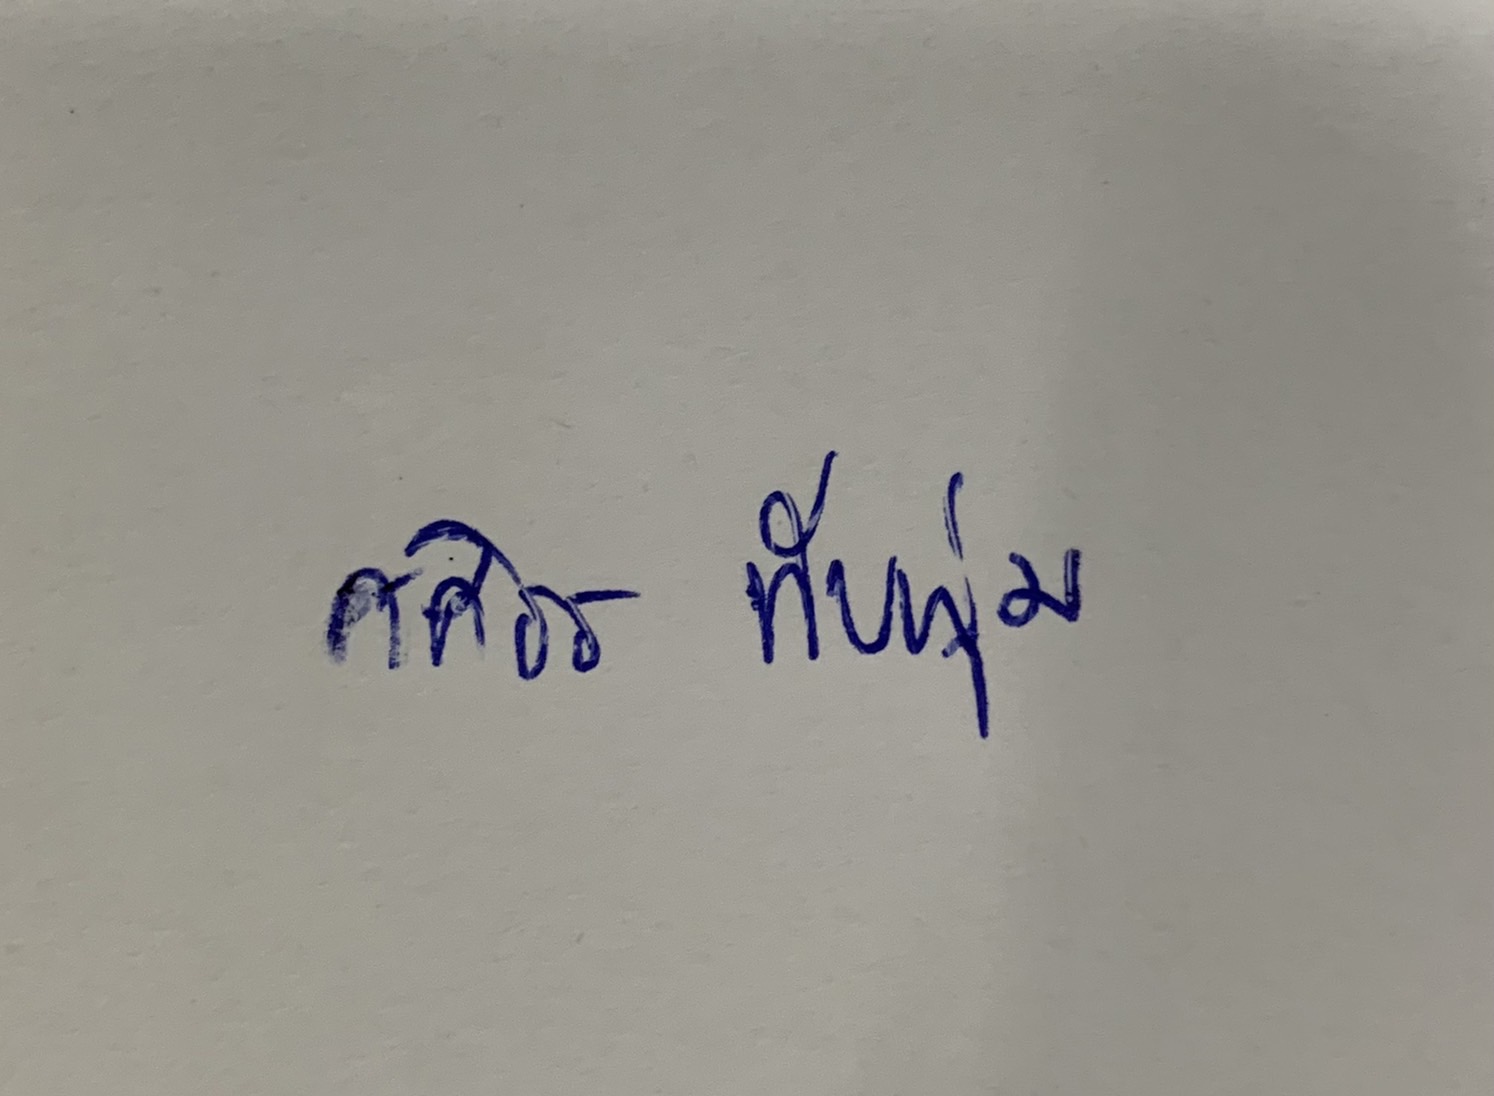 ศศิธร ทับพุ่ม